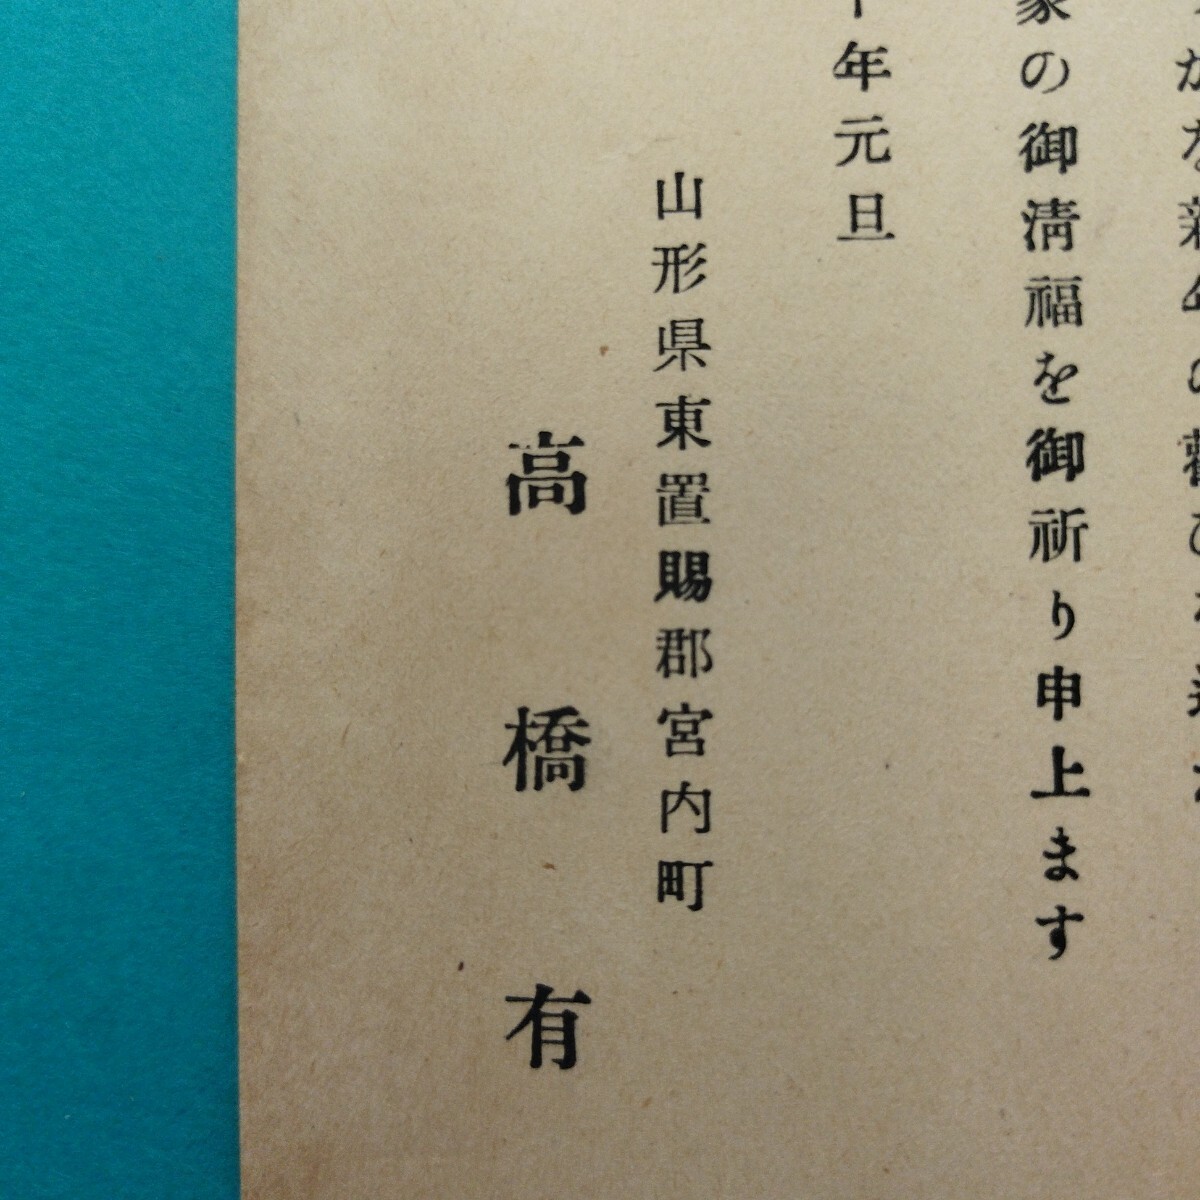 家の御清福を御祈り申上ます
十年元旦
山形県東置賜郡宮内町
高橋有